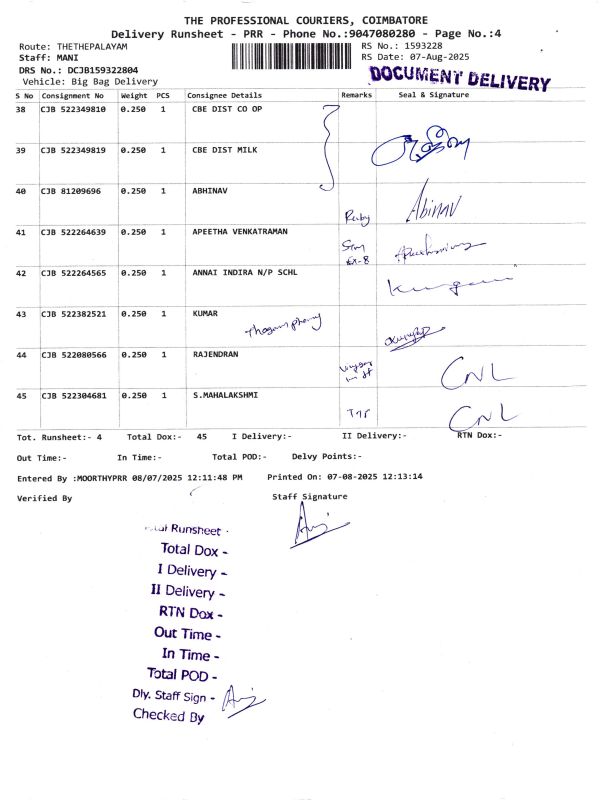 THE PROFESSIONAL COURIERS, COIMBATORE
Delivery Runsheet - PRR - Phone No.:9047080280 - Page No.:4
Route: THETHEPALAYAM RS No.: 1593228
Staff: MANI RS Date: 07-Aug-2025
DRS No.: DCJB159322804
Vehicle: Big Bag Delivery
DOCUMENT DELIVERY
S No Consignment No Weight PCS Consignee Details Remarks Seal & Signature
38 CJB 522349810 0.250 1 CBE DIST CO OP
39 CJB 522349819 0.250 1 CBE DIST MILK
40 CJB 81209696 0.250 1 ABHINAV
Ruby Abinav
41 CJB 522264639 0.250 1 APEETHA VENKATRAMAN
42 CJB 522264565 0.250 1 ANNAI INDIRA N/P SCHL
43 CJB 522382521 0.250 1 KUMAR
44 CJB 522080566 0.250 1 RAJENDRAN
CNL
45 CJB 522304681 0.250 1 S.MAHALAKSHMI
CNL
Tot. Runsheet:- 4 Total Dox:- 45 I Delivery:- II Delivery:- RTN Dox:-
Out Time:- In Time:- Total POD:- Delvy Points:-
Entered By :MOORTHYPRR 08/07/2025 12:11:48 PM Printed On: 07-08-2025 12:13:14
Verified By Staff Signature
Total Runsheet -
Total Dox -
I Delivery -
II Delivery -
RTN Dox -
Out Time -
In Time -
Total POD -
Dly. Staff Sign -
Checked By